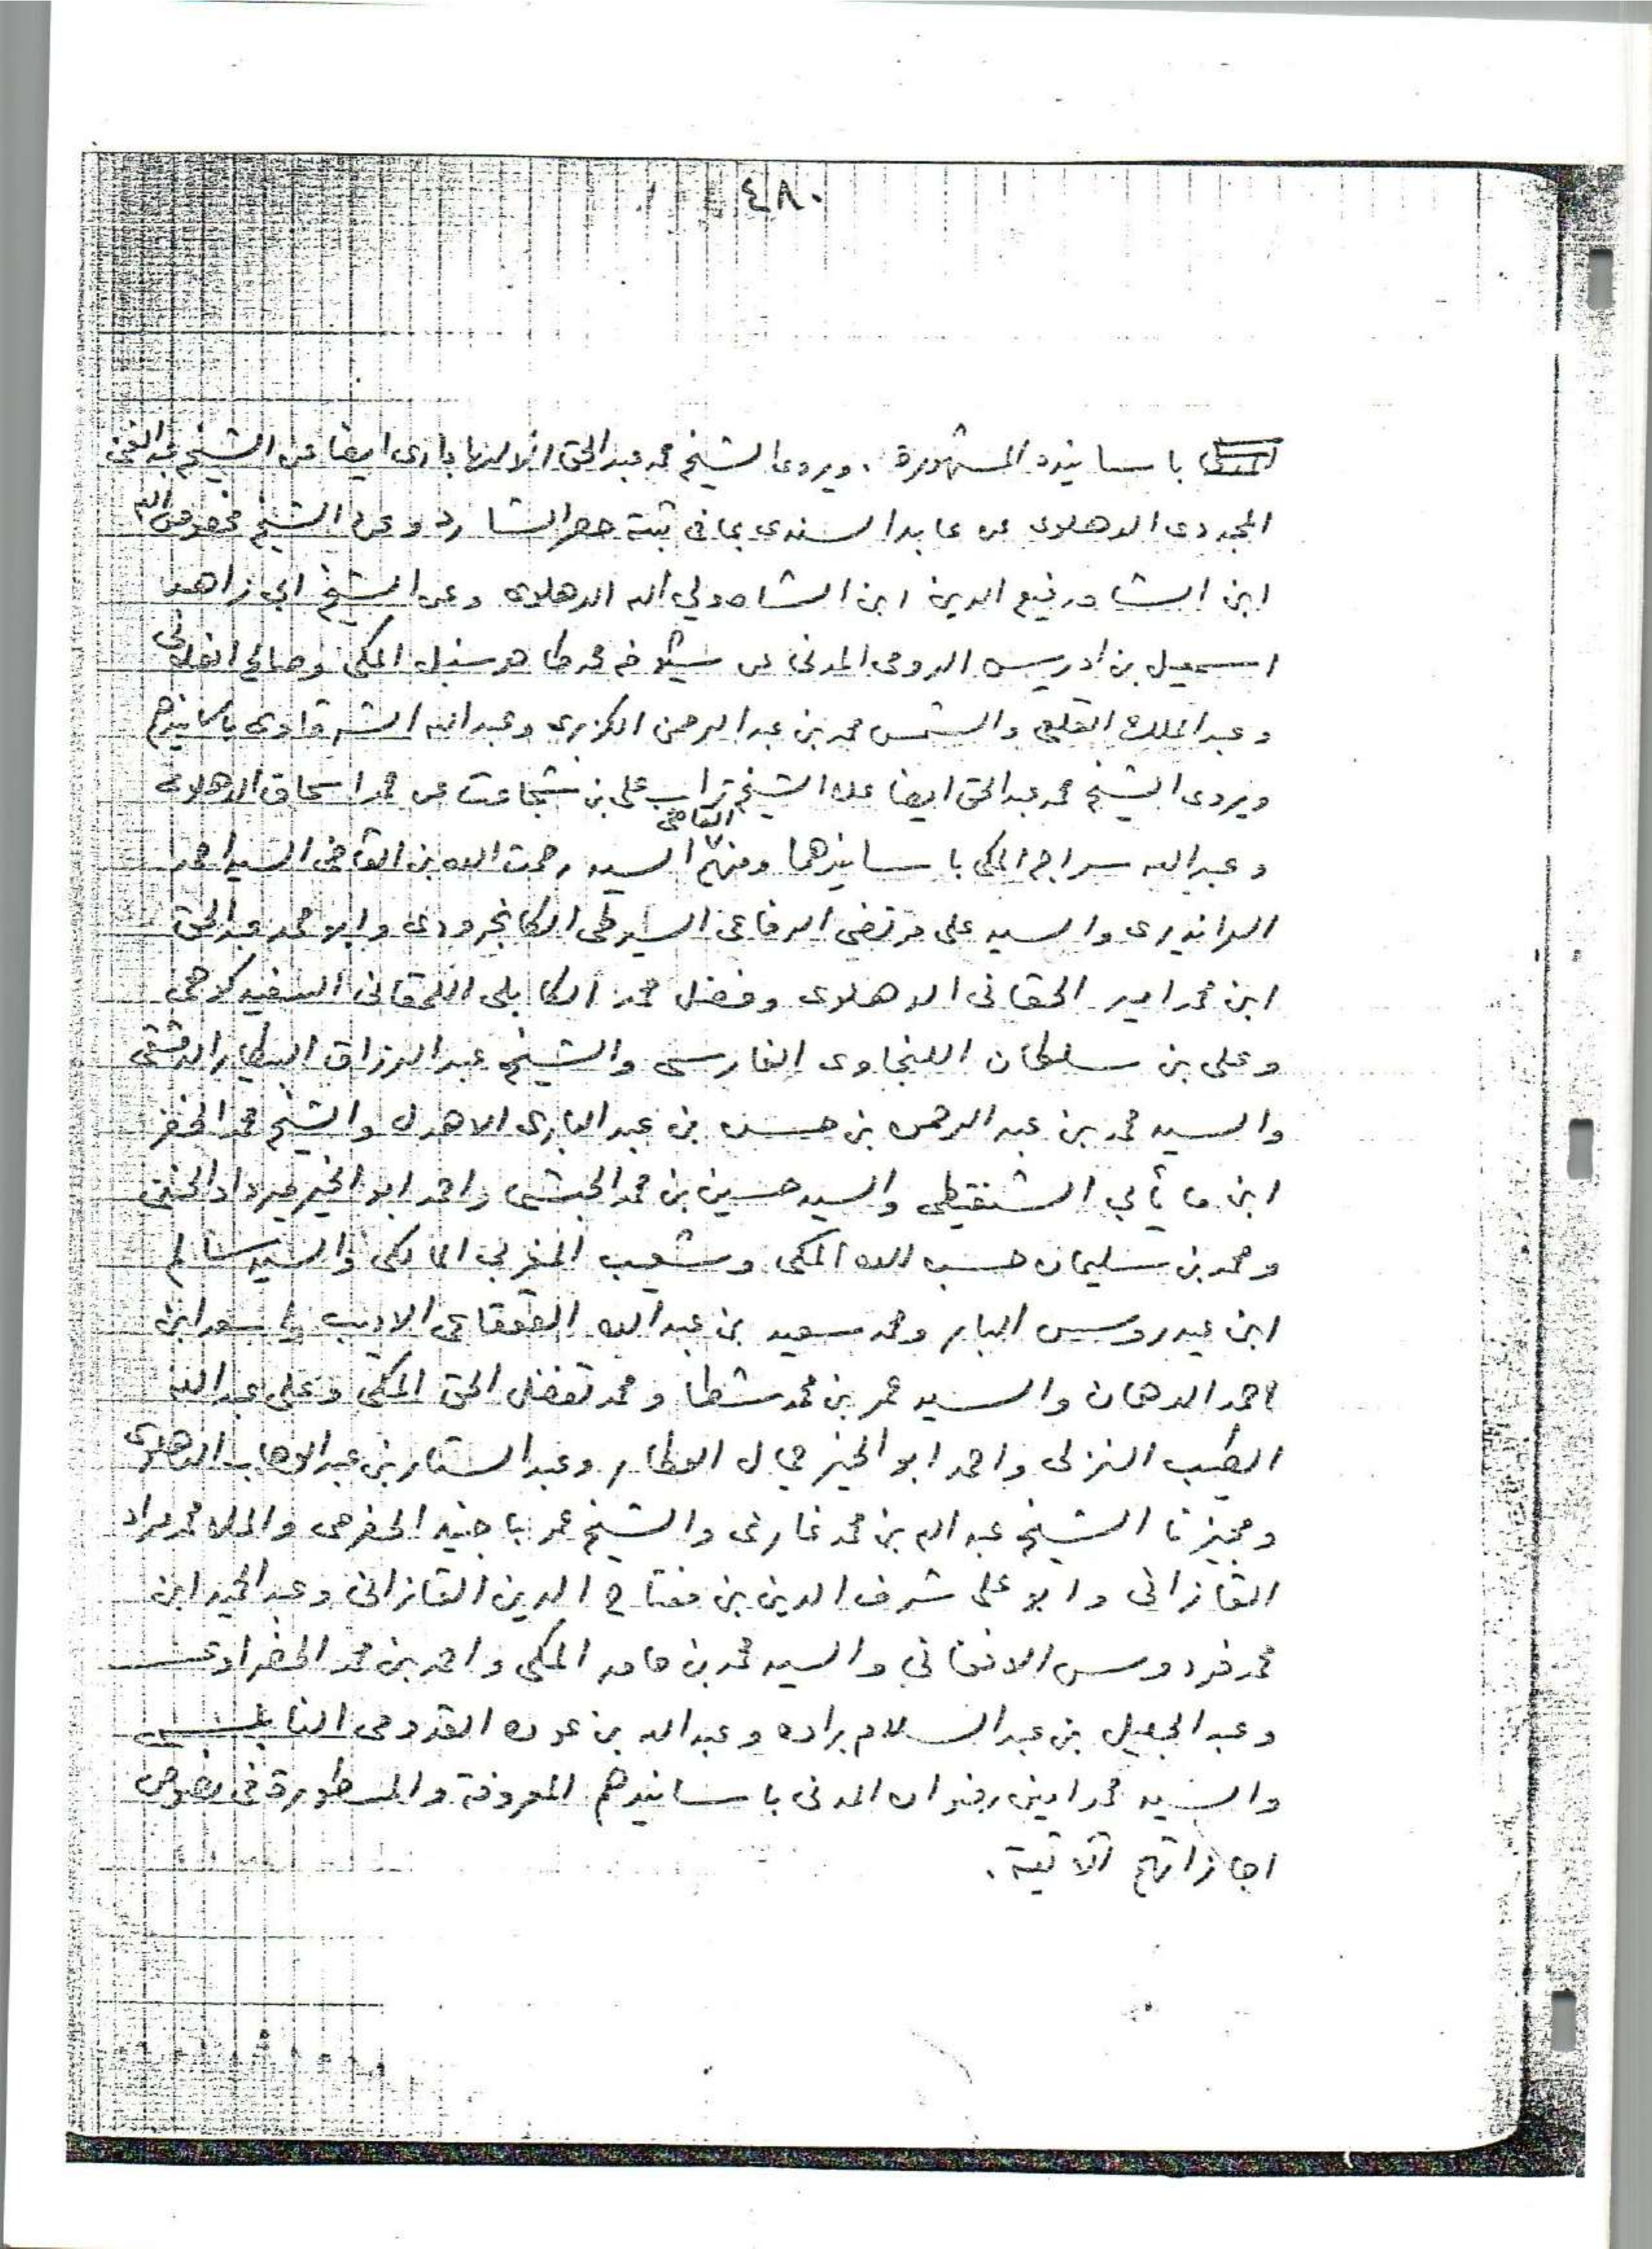 ٤٨٠
باسانيده المشهورة . ويروى الشيخ محمد عبدالحق الالهابادى ايضا عن الشيخ عبدالغنى
المجددى الدهلوى عن عابد السندى بما فى ثبته حصر الشارد وعن الشيخ مخصوص الله
ابن الشاه رفيع الدين ابن الشاه ولي الله الدهلوى وعن الشيخ ابي زاهد
اسمعيل بن ادريس الرومى المدنى عن شيوخه محمد طاهر سنبل المكى وصالح الفلانى
وعبد الملك القلعى والشمس محمد بن عبد الرحمن الكزبرى وعبد الله الشرقاوى باسانيدهم
ويروى الشيخ محمد عبدالحق ايضا عن الشيخ تراب على بن شجاعت عن محمد اسحاق الدهلوى
وعبدالله سراج المكى باسانيدهما ومنهم القاضى السيد رحمت الله بن القاضى السيد احمد
الراندیرى والسيد على مرتضى الرفاعى السيوطى الكانجرودى وابو محمد عبدالحق
ابن محمد امير الحقانى الدهلوى وفضل محمد الكابلى اللمقانى السفيد كلاهى
وعلى بن سلطان اللنجاوى الفارسى والشيخ عبد الرزاق البيطار الدمشقى
والسيد محمد بن عبد الرحمن بن حسن بن عبد البارى الاهدل والشيخ محمد الخضر
ابن مايأبي الشنقيطى والسيد حسين بن محمد الحبشى واحمد ابو الخير ميرداد الحنفى
ومحمد بن سليمان حسب الله المكى وشعيب المغربي المالكى والسيد سالم
ابن عيدروس البار ومحمد سعيد بن عبد الله القعقاعى الاديب واسعد ابن
احمد الدهان والسيد عمر بن محمد شطا ومحمد تفضل الحق المكى وعلى عبد الله
الطيب النزلى واحمد ابو الخير جمال العطار وعبد الستار بن عبد الوهاب الدهلوى
ومجيزنا الشيخ عبد الله بن محمد غازى والشيخ عمر باجنيد الحضرمى والملا محمد مراد
القازانى وابو على شرف الدين بن مفتاح الدين القازانى وعبد الحيد ابن
محمد فردوس الافغاني والسيد محمد بن حامد المكى واحمد بن محمد الحضراوى
وعبد الجليل بن عبد السلام براده وعبد الله بن عوده القدومى النابلسى
والسيد محمد امين رضوان المدنى باسانيدهم المعروفة والمسطورة فى نصوص
اجازاتهم الآتية .